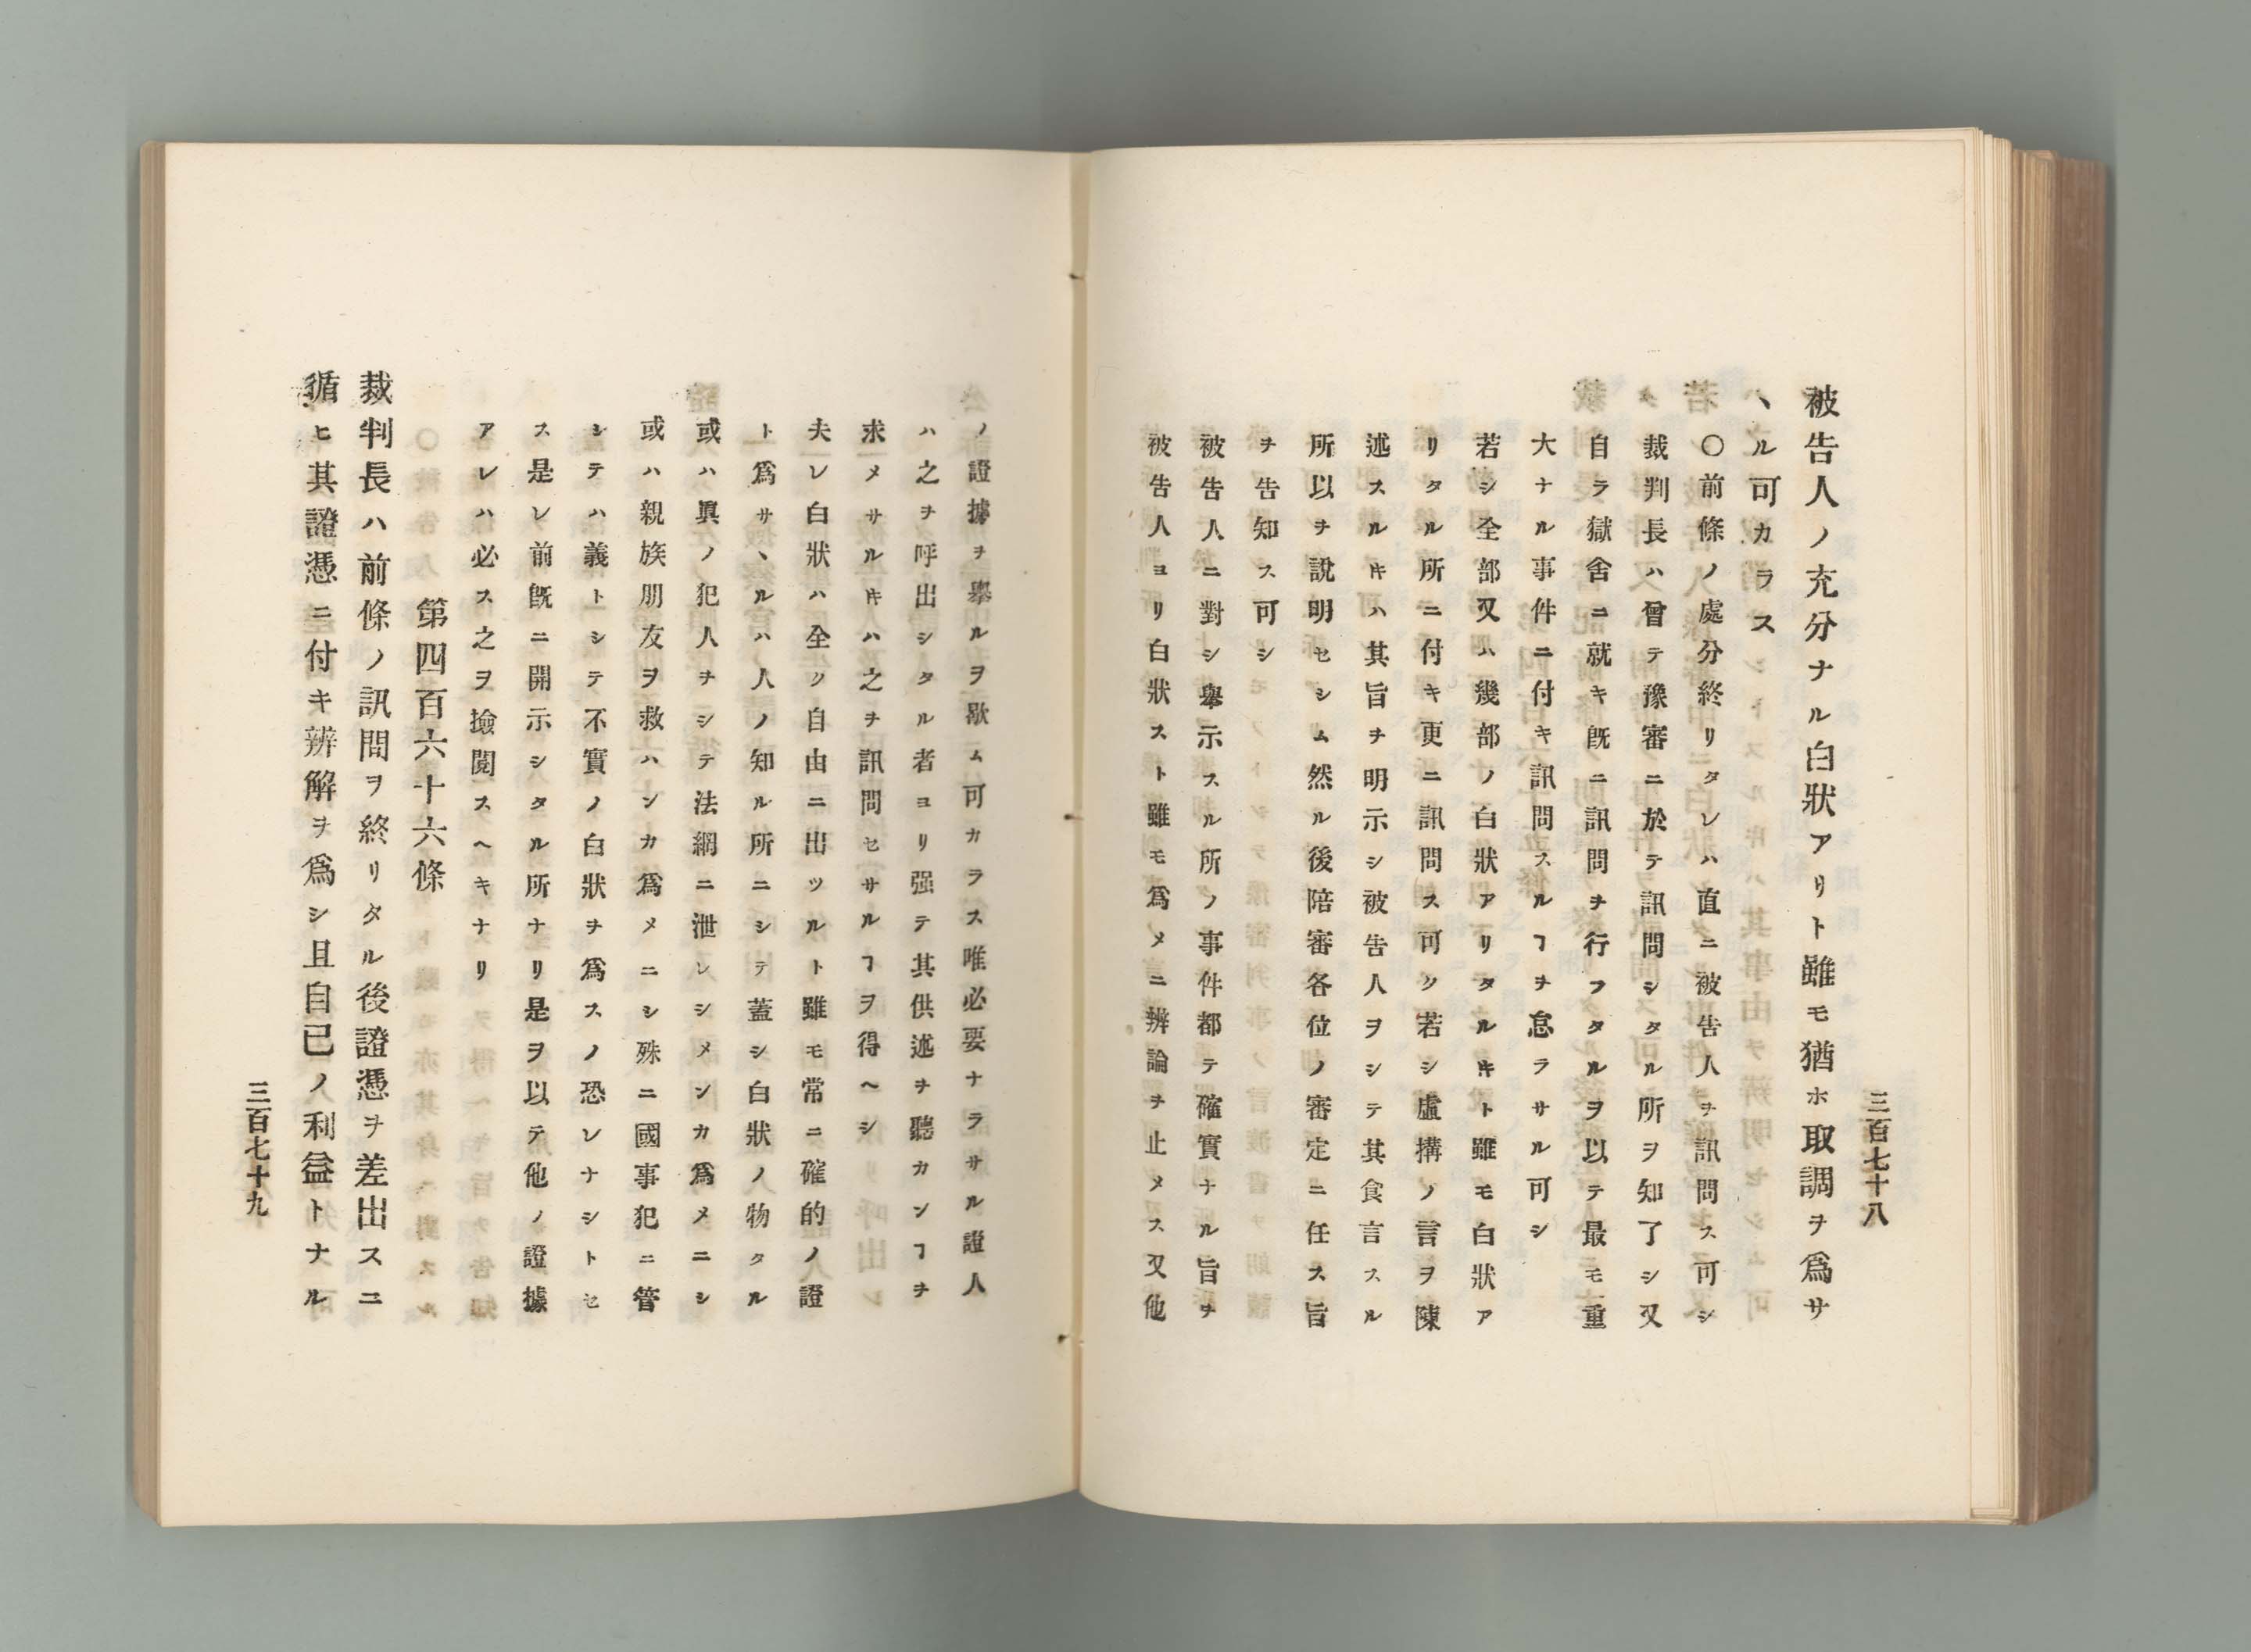 三百七十八
被告人ノ充分ナル白狀アリト雖モ猶ホ取調ヲ爲サ
ヽル可カラス
〇前條ノ處分終リタレハ直ニ被告人ヲ訊問ス可シ
裁判長ハ曾テ豫審ニ於テ訊問シタル所ヲ知了シ又
自ラ獄舍ニ就キ旣ニ訊問ヲ行フタルヲ以テ最モ重
大ナル事件ニ付キ訊問スルヿヲ怠ラサル可シ
若シ全部又ハ幾部ノ白狀アリタルキト雖モ白狀ア
リタル所ニ付キ更ニ訊問ス可ク若シ虛搆ノ言ヲ陳
述スルキハ其旨ヲ明示シ被告人ヲシテ其食言スル
所以ヲ說明セシム然ル後陪審各位ノ審定ニ任ス旨
ヲ告知ス可シ
被告人ニ對シ擧示スル所ノ事件都テ確實ナル旨ヲ
被告人ヨリ白狀スト雖モ爲メニ辨論ヲ止メス又他
ノ證據ヲ擧ルヲ歇ム可カラス唯必要ナラサル證人
ハ之ヲ呼出シタル者ヨリ强テ其供述ヲ聽カンヿヲ
求メサルキハ之ヲ訊問セサルヿヲ得ヘシ
夫レ白狀ハ全ク自由ニ出ツルト雖モ常ニ確的ノ證
ト爲サヽルハ人ノ知ル所ニシテ蓋シ白狀ノ物タル
或ハ眞ノ犯人ヲシテ法網ニ泄レシメンカ爲メニシ
或ハ親族朋友ヲ救ハンカ爲メニシ殊ニ國事犯ニ管
シテハ義トシテ不實ノ白狀ヲ爲スノ恐レナシトセ
ス是レ前旣ニ開示シタル所ナリ是ヲ以テ他ノ證據
アレハ必ス之ヲ撿閱スヘキナリ
第四百六十六條
裁判長ハ前條ノ訊問ヲ終リタル後證憑ヲ差出スニ
循ヒ其證憑ニ付キ辨解ヲ爲シ且自己ノ利益トナル
三百七十九